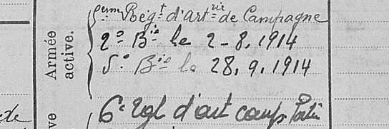 Armée active.
Regt d'Artie de Campagne
2e Bie le 2-8.1914
5e Bie le 28.9.1914
6e Rgt d'art camp